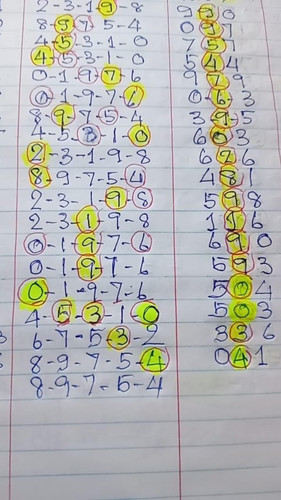 2-3-1-9-8 930
8-9-7-5-4 091
4-5-3-1-0 751
4-5-3-1-0 544
0-1-9-7-6 979
0-1-9-7-6 063
8-9-7-5-4 395
4-5-3-1-0 603
2-3-1-9-8 676
8-9-7-5-4 481
2-3-1-9-8 598
2-3-1-9-8 116
0-1-9-7-6 690
0-1-9-7-6 593
0-1-9-7-6 504
4-5-3-1-0 503
6-7-5-3-2 336
8-9-7-5-4 041
8-9-7-5-4